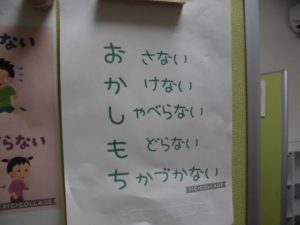 お さない
か けない
し ゃべらない
も どらない
ち かづかない
PIC・COLLAGE
ない
らない
PIC・COLLAGE